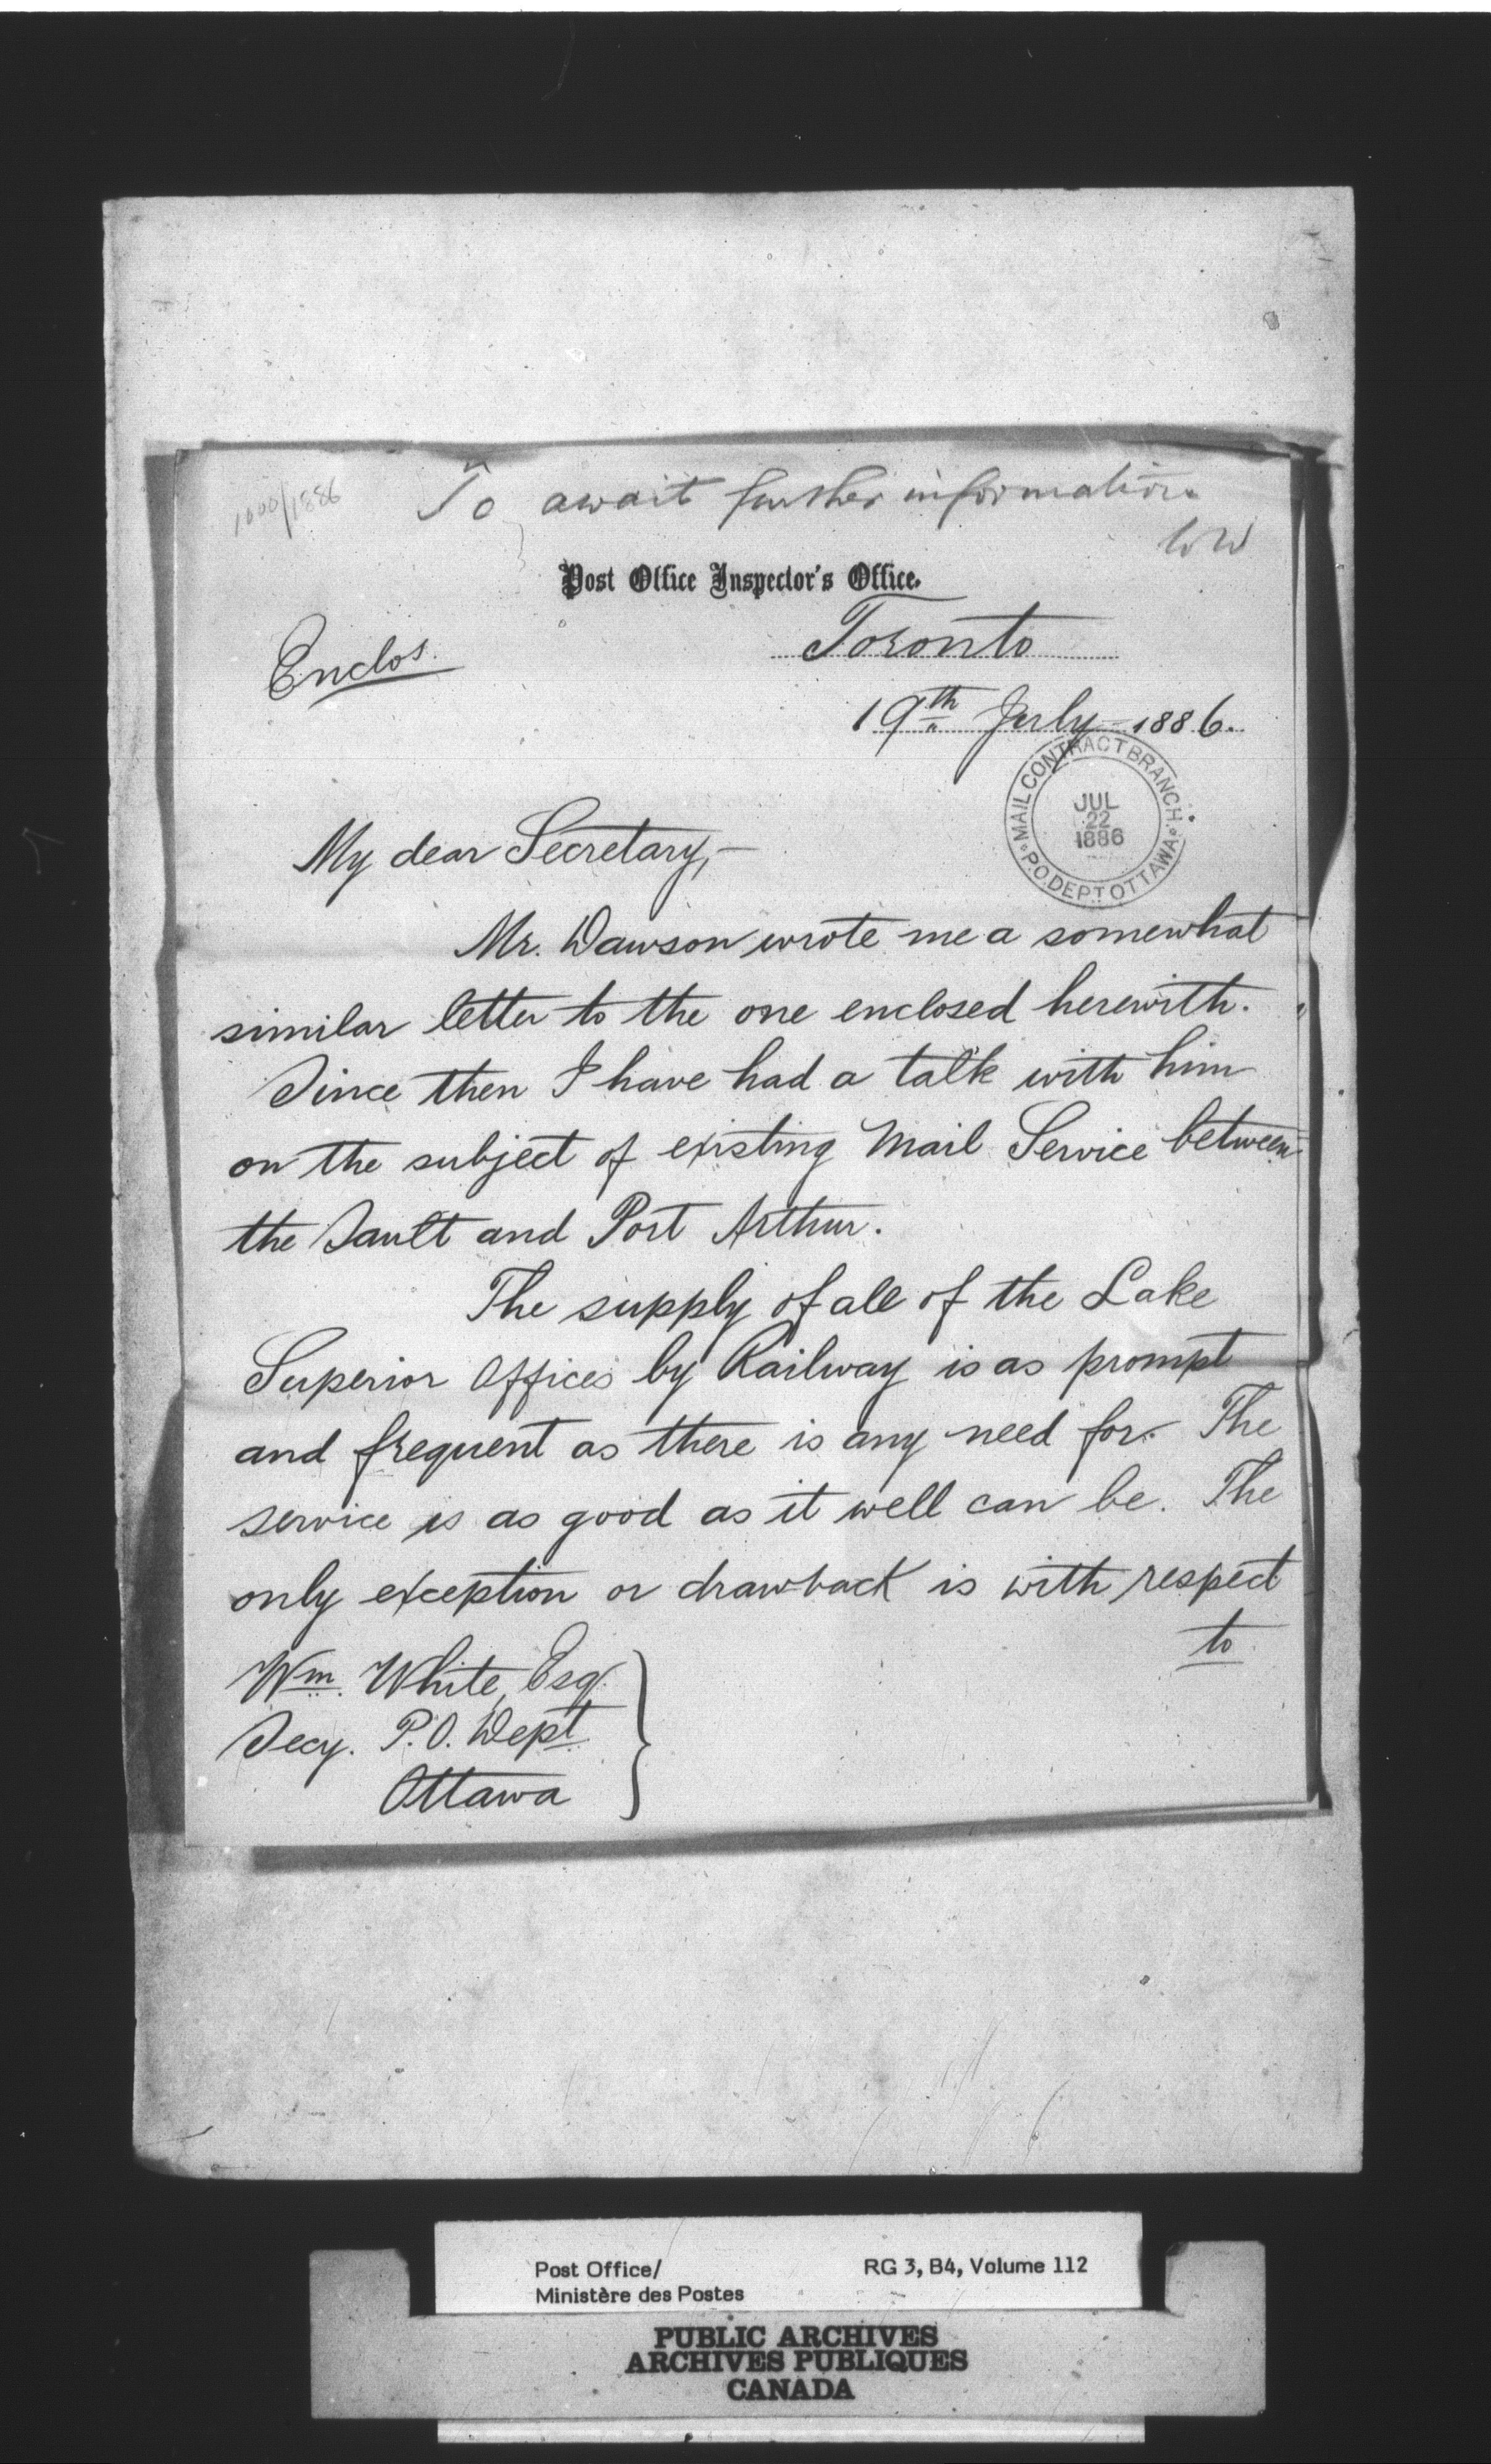 1000/1886
To await further information
WW
Post Office Inspector's Office.
Enclos.
Toronto
19th July 1886.
MAIL CONTRACT BRANCH. P.O. DEPT OTTAWA
JUL
22
1886
My dear Secretary,—
Mr. Dawson wrote me a somewhat
similar letter to the one enclosed herewith.
Since then I have had a talk with him
on the subject of existing Mail Service between
the Sault and Port Arthur.
The supply of all of the Lake
Superior Offices by Railway is as prompt
and frequent as there is any need for. The
service is as good as it well can be. The
only exception or drawback is with respect
to
Wm. White, Esq.
Secy. P.O. Dept
Ottawa
Post Office/
Ministère des Postes
RG 3, B4, Volume 112
PUBLIC ARCHIVES
ARCHIVES PUBLIQUES
CANADA